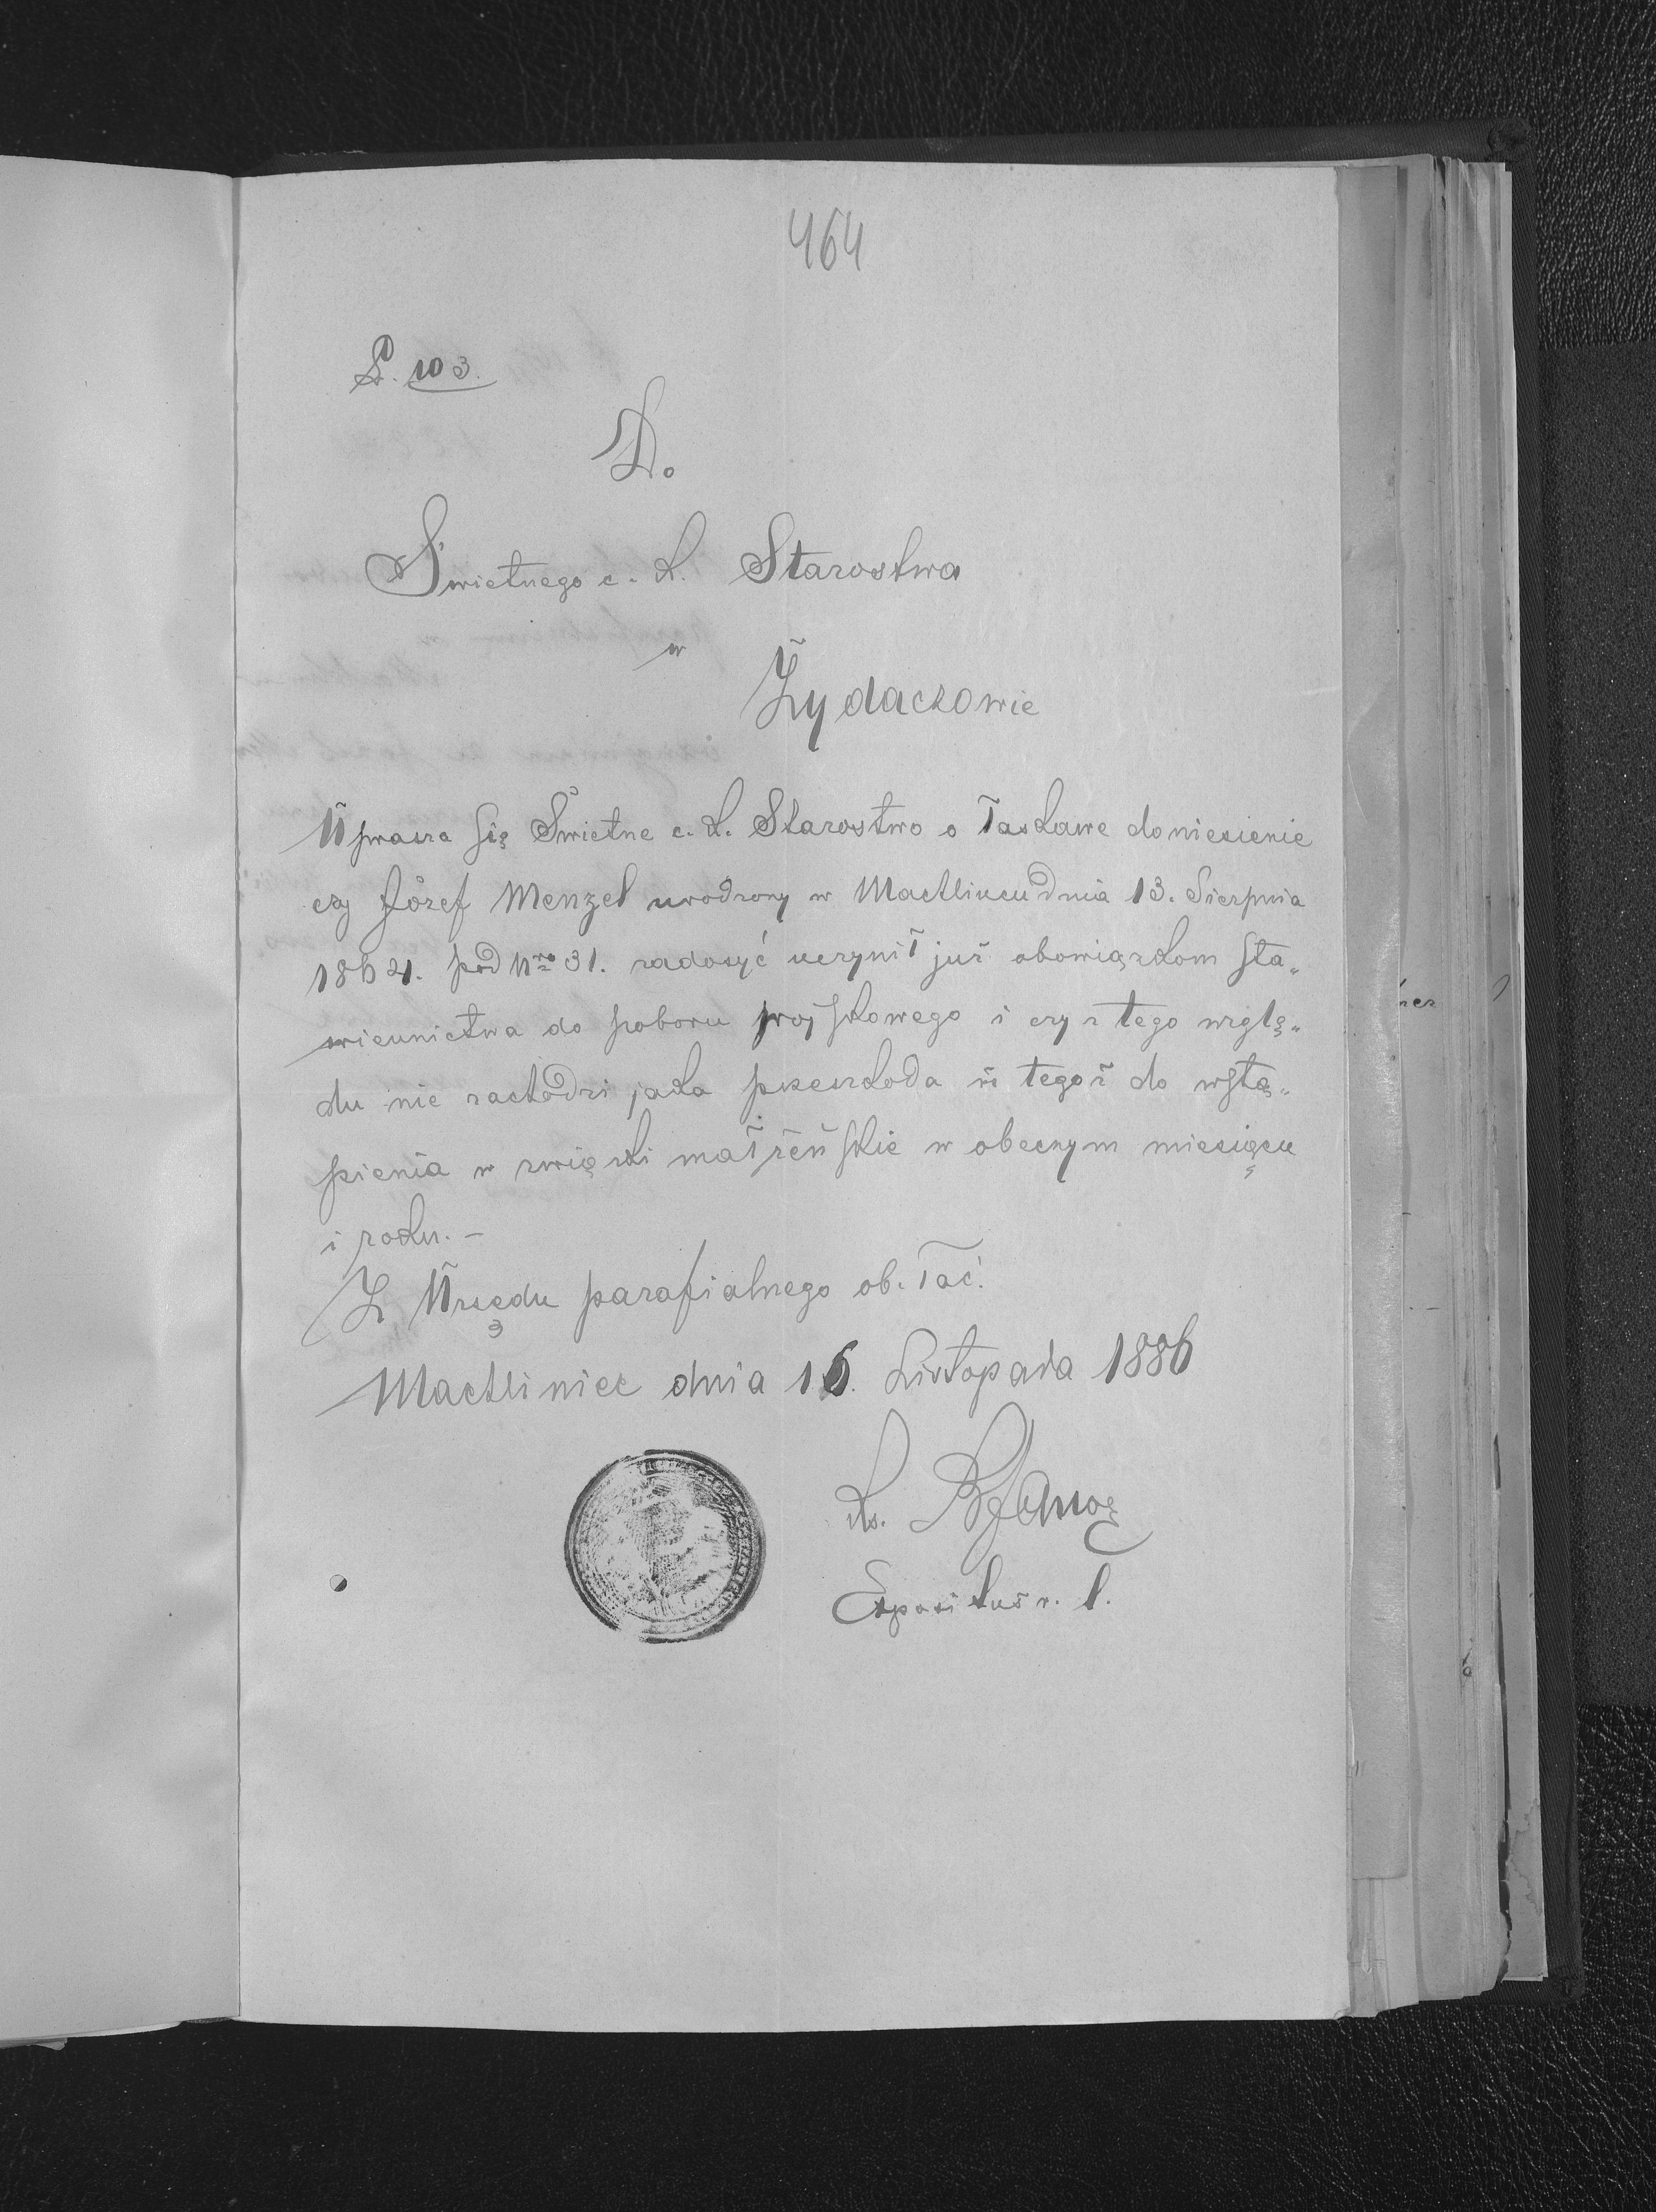 464
L. 103.
Do
Świetnego c. k. Starostwa
w
Żydaczowie
Uprasza się Świetne c. k. Starostwo o łaskawe doniesienie
czy Józef Menzel urodzony w Machlincu dnia 13. Sierpnia
1864. pod Nro 31. zadosyć uczynił już obowiązkom sta„
wiennictwa do poboru wojskowego i czy z tego wzglę„
du nie zachodzi jaka przeszkoda u tegoż do wstą„
pienia w związki małżeńskie w obecnym miesiącu
i roku. –
Z Urzędu parafialnego ob. łać.
Machliniec dnia 16. Listopada 1886
Ks.
Expositus r. l.